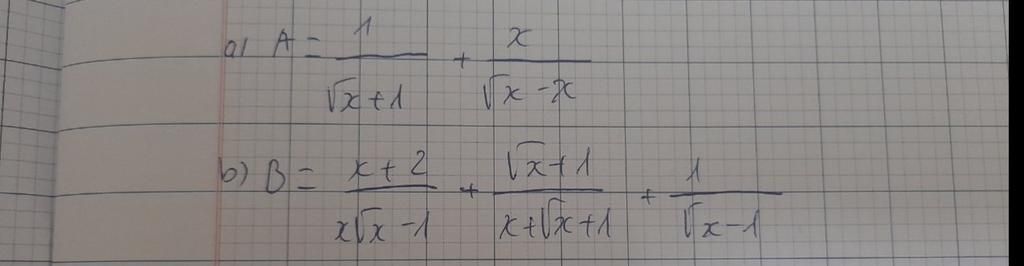 a) A = 1/(√x + 1) + x/(√x - x)
b) B = (x + 2)/(x√x - 1) + (√x + 1)/(x + √x + 1) + 1/(√x - 1)